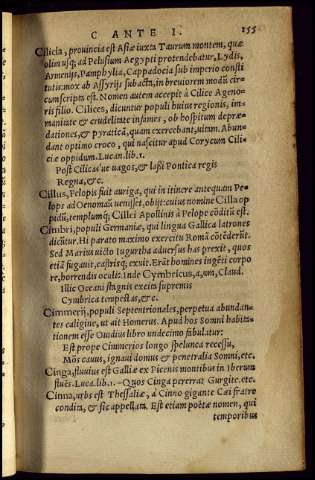 C ANTE I. 255
Cilicia, prouincia est Asiæ iuxta Taurum montem, quæ
olim usq; ad Pelusium Aegypti protendebatur, Lydis,
Armenijs, Pamphylia, Cappadocia sub imperio consti
tutis: mox ab Assyrijs subacta, in breuiorem modū cir
cumscripta est. Nomen autem accepit à Cilice Ageno
ris filio. Cilices, dicuntur populi huius regionis, im-
manitate & crudelitate infames, ob hospitum depræ-
dationes, & pyraticā, quam exercebant, uitam. Abun
dant optimo croco, qui nascitur apud Corycum Cili
ciæ oppidum. Lucan. lib. 1.
Post Cilicas'ue uagos, & lassi Pontica regis
Regna, &c.
Cillus, Pelopis fuit auriga, qui in itinere antequam Pe-
lops ad Oenomaū uenisset, obijt: cuius nomine Cilla op
pidū, templumq; Cillei Apollinis à Pelope cōditū est.
Cimbri, populi Germaniæ, qui lingua Gallica latrones
dicūtur. Hi parato maximo exercitu Romā cōtēderūt.
Sed Marius uicto Iugurtha aduersus has prexit, quos
etiā fugauit, castrisq; exuit. Erāt homines ingēti corpo
re, horrendis oculis: inde Cymbricus, a, um, Claud.
Illic Oceani stagnis excita supremis
Cymbrica tempestas, &c.
Cimmerij, populi Septentrionales, perpetua abundan-
tes caligine, ut ait Homerus. Apud hos Somni habita-
tionem esse Ouidius libro undecimo fabulatur:
Est prope Cimmerios longo spelunca recessu,
Mōs cauus, ignaui domus & penetralia Somni, etc.
Cinga, fluuius est Galliæ ex Picenis montibus in Iberum
fluēs. Luca. lib. 1. -Quos Cinga pererrat Gurgite. etc.
Cinna, urbs est Thessaliæ, à Cinno gigante Cæi fratre
condita, & sic appellata. Est etiam poëtæ nomen, qui
temporibus